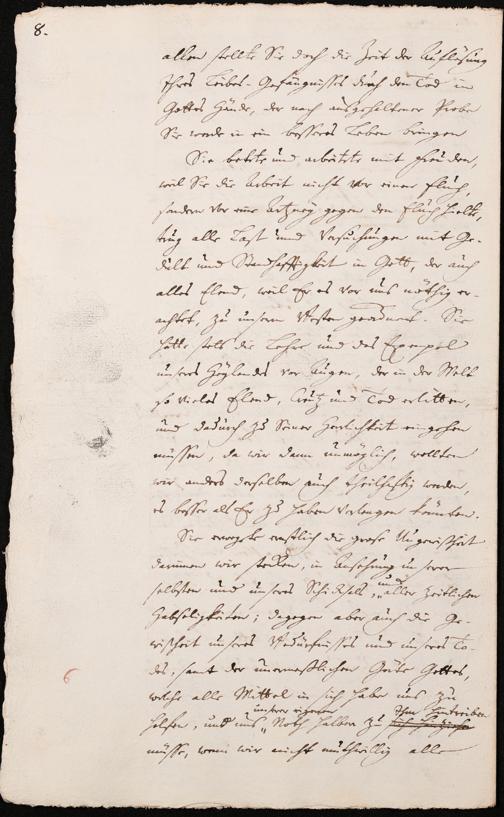 8.
allem stellte Sie doch die Zeit der Auflösung
Ihres Leibes-Gefängnisses durch den Tod in
Gottes Hände, der nach ausgehaltener Probe
Sie werde in ein besseres Leben bringen
Sie betete und arbeitete mit Freuden,
weil Sie die Arbeit nicht vor einen Fluch,
sondern vor eine Artzney gegen den Fluch hielte,
trug alle Last und Versuchungen mit Ge-
dult und Standhafftigkeit in Gott, der auch
alles Elend, weil Er es vor uns nöthig er-
achtet, zu unserm Besten geordnet. Sie
hatte stets die Lehre und das Exempel
unseres Heylandes vor Augen, der in der Welt
so vieles Elend, Creutz und Tod erlitten,
und dadurch zu Seiner Herrlichkeit eingehen
müssen, da wir dann unmöglich, wollten
wir anders derselben auch theilhafftig werden,
es besser als Er zu haben verlangen könnten.
Sie erwegte ernstlich die große Ungewißheit
darinnen wir stecken, in Ansehung unserer
selbsten und unseres Schicksals, und aller zeitlichen
Habseligkeiten; dagegen aber auch die Ge-
wißheit unseres Bedürfnisses und unseres To-
des, samt der unermeßlichen Güte Gottes,
welche alle Mittel in sich habe uns zu
helfen, und uns unserer eigenen Noth halben zu Ihm hintreiben
müsse, wenn wir nicht muthwillig alle